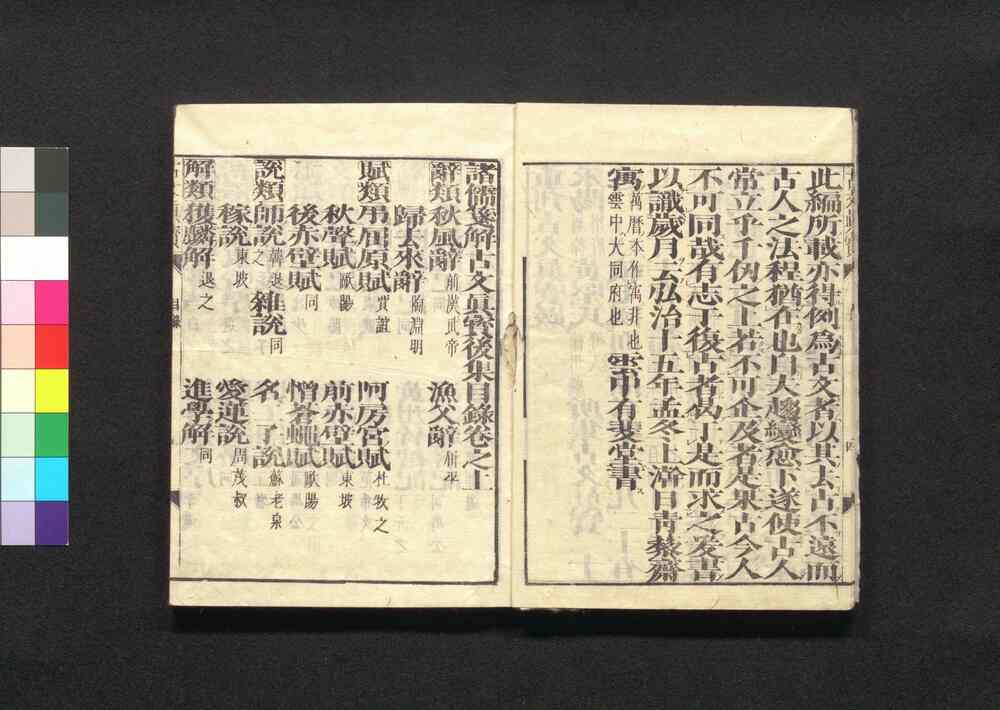 此編所載亦得例為古文者以其去古不遠而
古人之法程猶在也自大趨變愈下遂使古人
常立乎千仭之上若不可企及者是果古今人
不可同哉有志于復古者為丁是而求之爰書
以識歲月云弘治十五年孟冬上澣日青藜齋
寓萬曆本作寓非也雲中大同府也雲中有斐堂書
諸儒箋解古文眞寶後集目錄卷之上
辭類秋風辭前漢武帝 漁父辭屈平
歸去來辭陶淵明
賦類弔屈原賦賈誼 阿房宮賦杜牧之
秋聲賦歐陽 前赤壁賦東坡
後赤壁賦同 憎蒼蠅賦歐陽
說類師說韓退之 雜說同 名二子說蘇老泉
稼說東坡 愛蓮說周茂叔
解類獲麟解退之 進學解同
目錄